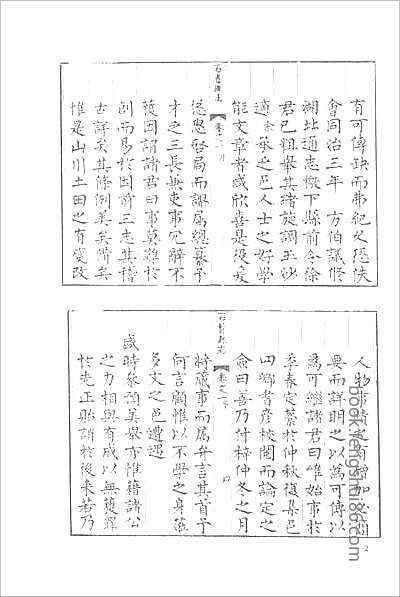 有可傳缺而弗紀久恐佚
會同治三年 方伯議修
湖北通志檄下縣前令徐
君已粗舉其緒旋調玉沙
適余承之邑人士之好學
能文章者咸欣喜是役爰
慫恿啓局而諏屬總纂予
才乏三長兼吏事冗辭不
獲因謂諸君曰事莫難於
創而易於因前三志其稽
古詳矣其條例美矣備矣
惟是山川土田之有變改
石首縣志
卷之一
人物事蹟之有增加必簡
要而詳明之以為可傳以
為可繼諸君曰唯始事於
季春定纂於仲秋復集邑
四鄉耆彥校閱而論定之
僉曰善乃付梓仲冬之月
將蕆事而屬弁言其首予
何言顧惟以不學之身蒞
多文之邑遭遇
盛時敬預美舉亦惟藉諸公
之力相與有成以無獲罪
於先正貽誚於後來若乃
石首縣志
卷之一
book.fengshui86.com
2